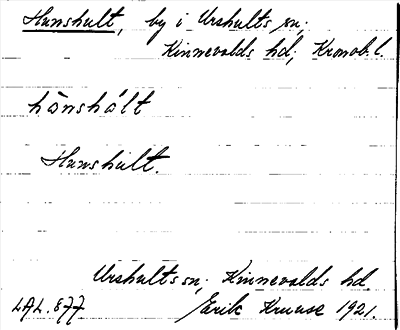 Hunshult, by i Urshults sn;
Kinnevalds hd; Kronob. l.
hònshólt
Hunshult.
Urshults sn; Kinnevalds hd.
LAL. 877. Erik Kruuse 1921.